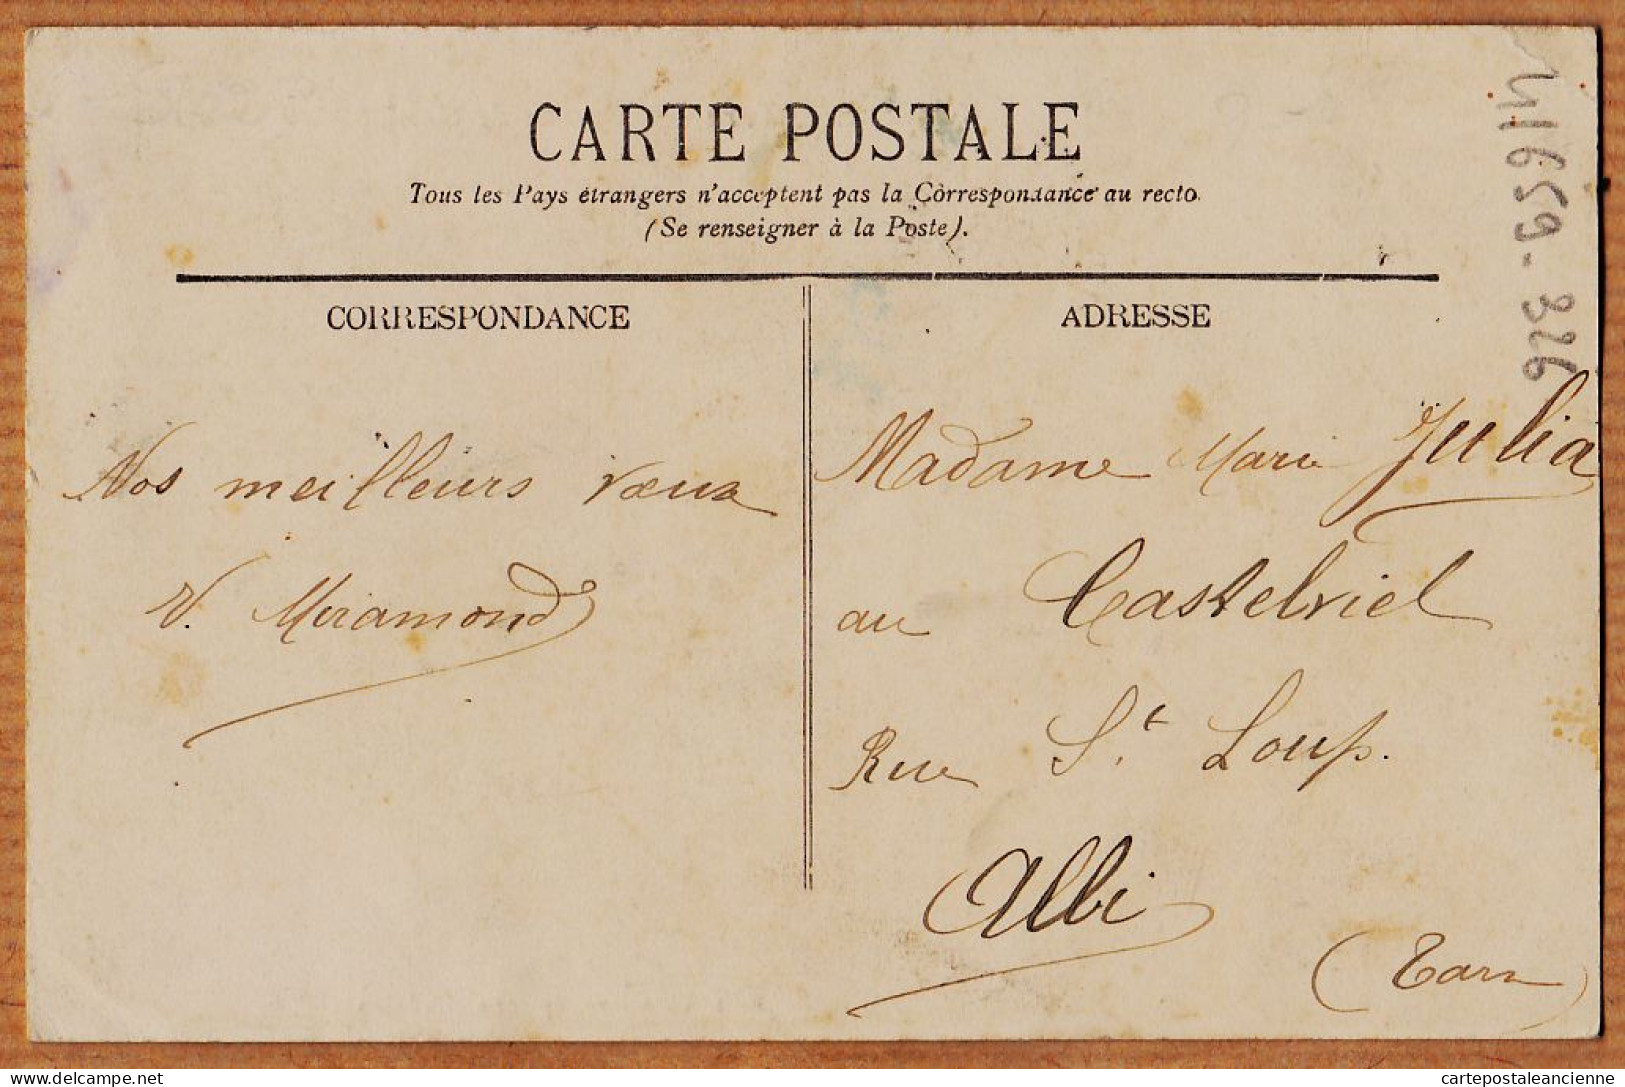 CARTE POSTALE
Tous les Pays étrangers n'acceptent pas la Correspondance au recto
(Se renseigner à la Poste).
CORRESPONDANCE
Nos meilleurs vœux
V. Miramond
ADRESSE
Madame Marie Julia
au Castelviel
Rue St. Loup.
Albi
(Tarn)
41659-326
delcampe.net
cartepostaleancienne